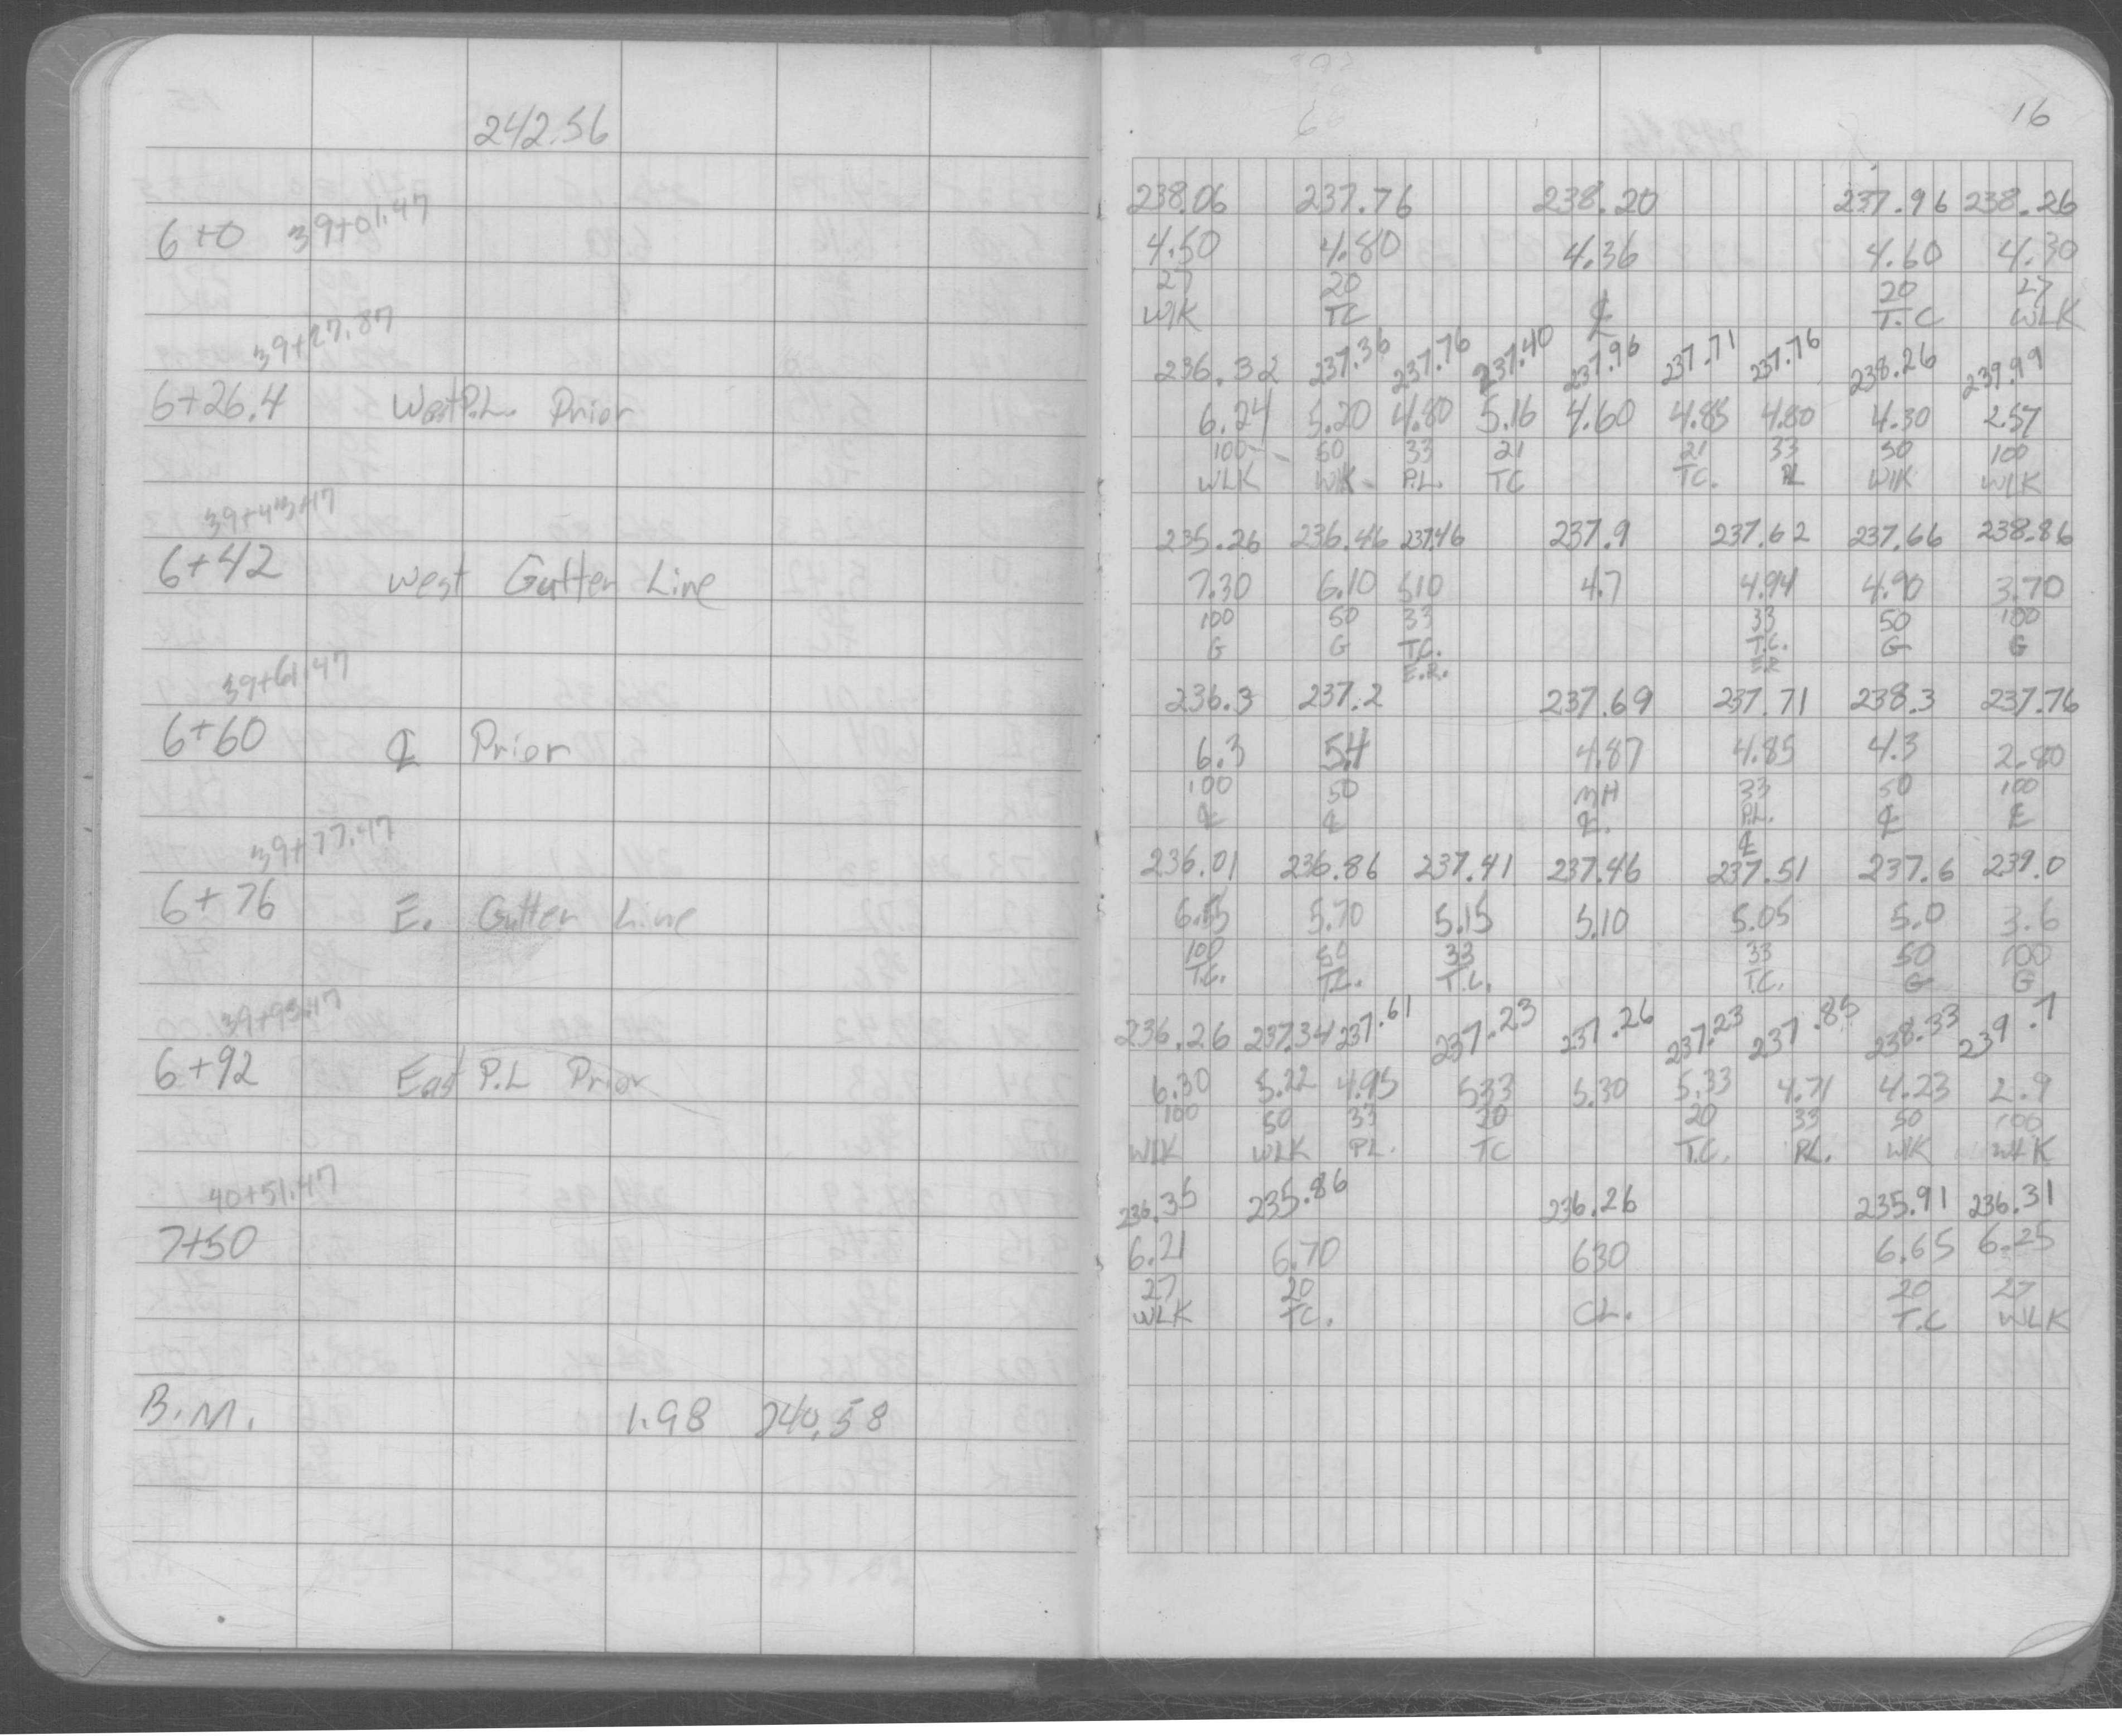 242.56
39+01.47
6+0
39+27.87
6+26.4 West P.L. Prior
39+43.47
6+42 West Gutter Line
39+61.47
6+60 ℄ Prior
39+77.47
6+76 E. Gutter Line
39+93.47
6+92 East P.L Prior
40+51.47
7+50
B.M. 1.98 240.58
16
238.06 237.76 238.20 237.96 238.26
4.50 4.80 4.36 4.60 4.30
27 20 20 27
WLK TC ℄ T.C WLK
236.32 237.36 237.76 237.40 237.96 237.71 237.76 238.26 239.99
6.24 5.20 4.80 5.16 4.60 4.85 4.80 4.30 2.57
100 50 33 21 21 33 50 100
WLK WK P.L. TC TC. PL WLK WLK
235.26 236.46 237.46 237.9 237.62 237.66 238.86
7.30 6.10 510 4.7 4.94 4.90 3.70
100 50 33 33 50 100
G G T.C. T.C. G G
E.R. E.R
236.3 237.2 237.69 237.71 238.3 237.76
6.3 5.4 4.87 4.85 4.3 2.80
100 50 MH 33 50 100
℄ ℄ ℄. P.L. ℄ ℄
℄
236.01 236.86 237.41 237.46 237.51 237.6 239.0
6.55 5.70 5.15 5.10 5.05 5.0 3.6
100 50 33 33 50 100
T.C. T.C. T.C. T.C. G G
236.26 237.34 237.61 237.23 237.26 237.23 237.85 238.33 239.7
6.30 5.22 4.95 533 5.30 5.33 4.71 4.23 2.9
100 50 33 20 20 33 50 100
WLK WLK PL. TC T.C. P.L. WK WLK
236.35 235.86 236.26 235.91 236.31
6.21 6.70 630 6.65 6.25
27 20 20 27
WLK TC. CL. T.C WLK